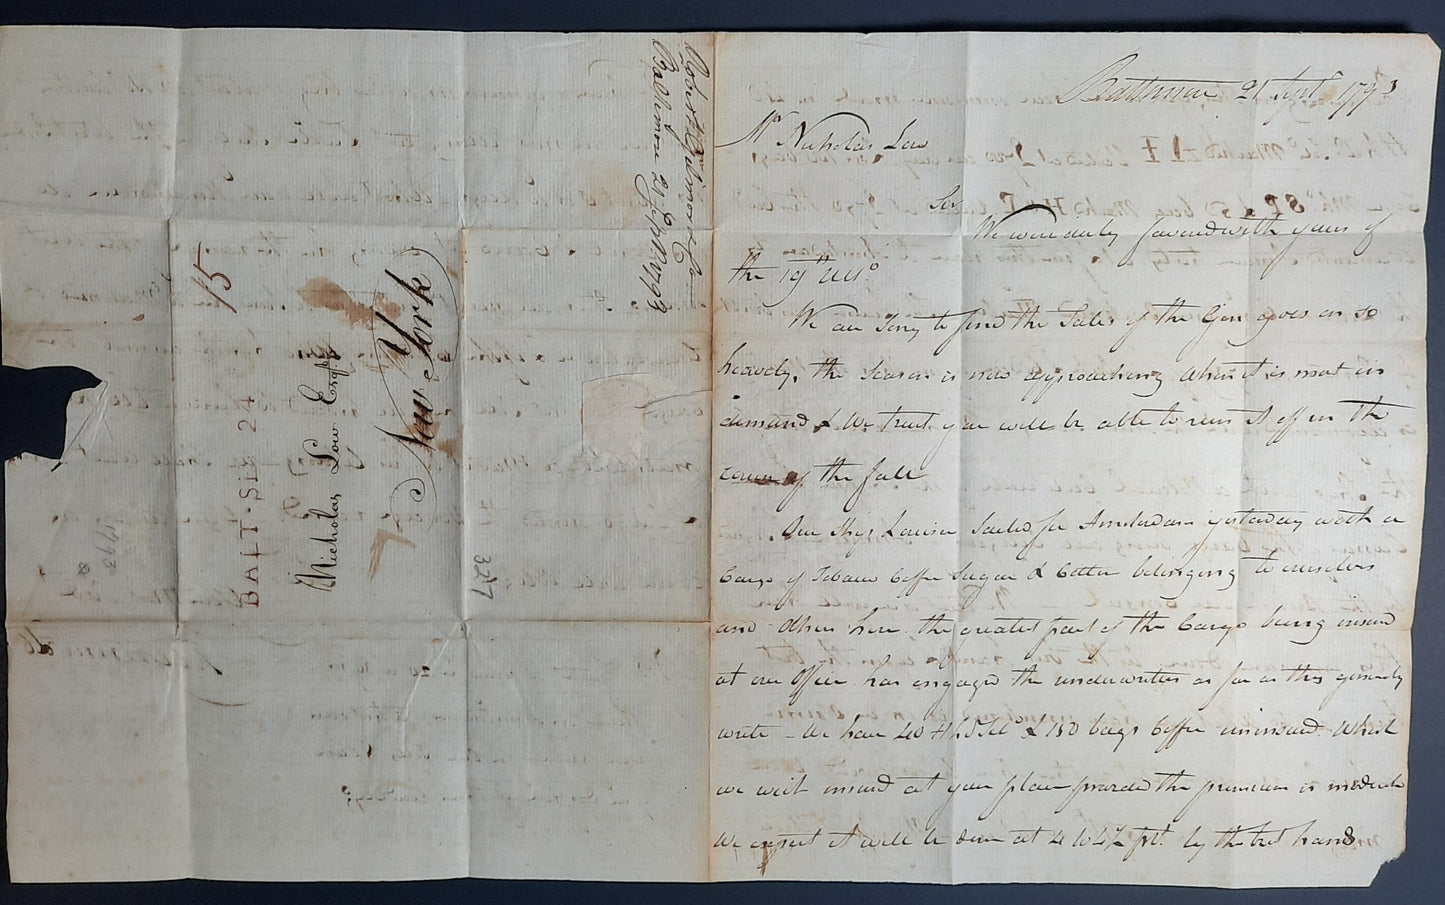 Baltimore 21 Sept 1793
Mr Nicholas Low
Sir
We were duly favoured with yours of
the 19th Ulto
We are sorry to find the Sales of the Gin goes on so
heavely, the Season is now approaching when it is most in
demand & We trust you will be able to run it off in the
course of the fall
Our Ship Louisa Sailed for Amsterdam yesterday with a
Cargo of Tobacco Coffee Sugar & Cotton belonging to ourselves
and others here. the greatest part of the Cargo being insured
at our Office has engaged the underwriters as far as they generaly
write - We have 40 Hhds Tobo & 150 bags Coffee uninsured. Which
we wish insured at your place provided the premium is moderate
We expect it will be done at 4 to 4½ pCt. by the best hands
Robert Gilmor & Co
Baltimore 21 Sept 1793
15
BALT. SEP 24
Nicholas Low Esqr
New York
327
1793